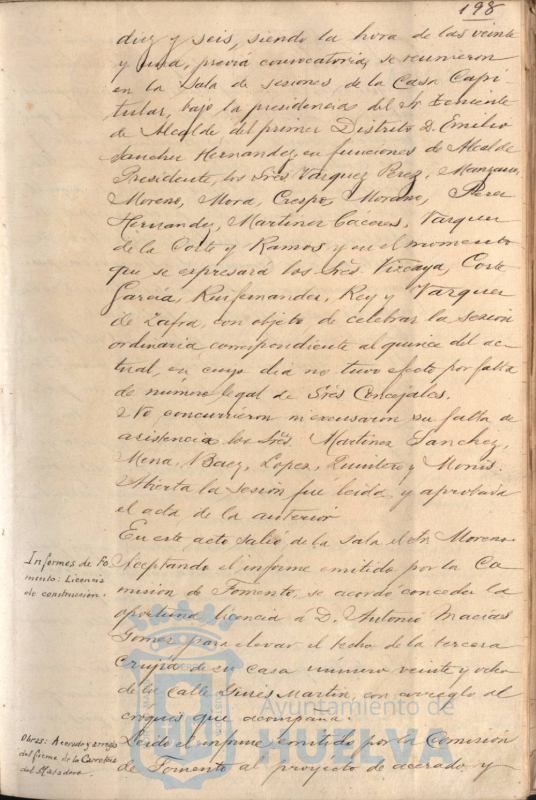 198
diez y seis, siendo la hora de las veinte
y una, previa convocatoria, se reunieron
en la Sala de sesiones, de la Casa Capi
tular, bajo la presidencia del Sr Teniente
de Alcalde del primer Distrito D. Emilio
Sanchez Hernandez, en funciones de Alcalde
Presidente, los Sres Vazquez Perez, Manzano,
Moreno, Mora, Crespo, Morano, Perez
Hernandez, Martinez Cáceres, Vazquez
de la Corte y Ramos y en el momento
que se expresará los Sres. Vizcaya, Corte
García, Ruifernandez, Rey y Vazquez
de Zafra, con objeto de celebrar la sesion
ordinaria correspondiente al quince del ac-
tual, en cuyo dia no tuvo efecto por falta
de número legal de Sres Concejales.
No concurrieron ni excusaron su falta de
asistencia los Sres. Martinez Sanchez,
Mena, Baez, Lopez, Quintero y Monis.
Abierta la sesión fué leida y aprobada
el acta de la anterior
En este acto salió de la sala el Sr. Moreno.
Informes de Fo
mento: Licencia
de construcción.
Aceptando el informe emitido por la Co-
mision de Fomento, se acordó conceder la
oportuna licencia a D. Antonio Macías
Gomez para elevar el techo de la tercera
crujía de su casa número veinte y ocho
de la Calle Ginés Martín, con arreglo al
croquis que acompaña.
Obras: Acerado y arreglo
del firme de la Carretera
del Matadero.
Leido el informe emitido por la Comisión
de Fomento al proyecto de acerado y
Ayuntamiento de
HUELVA